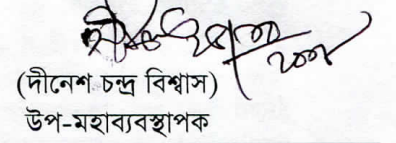 (দীনেশ চন্দ্র বিশ্বাস)
উপ-মহাব্যবস্থাপক